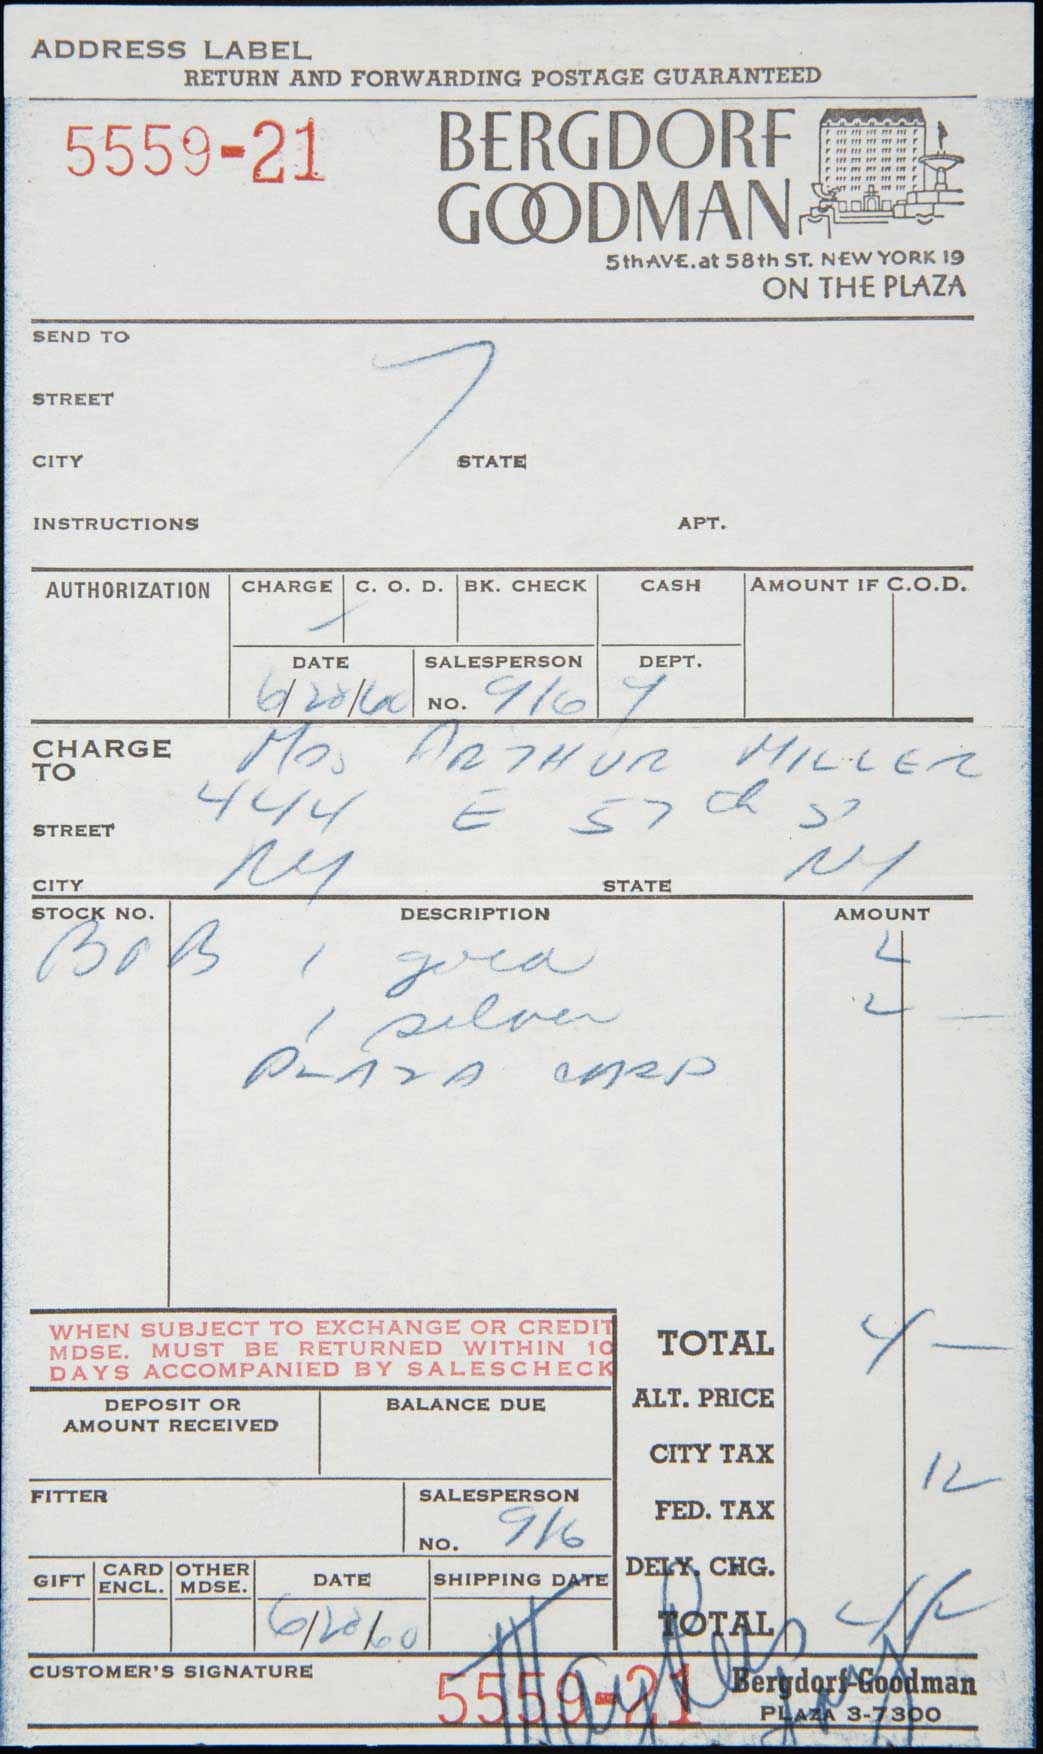 ADDRESS LABEL
RETURN AND FORWARDING POSTAGE GUARANTEED
5559-21
BERGDORF
GOODMAN
5th AVE. at 58th ST. NEW YORK 19
ON THE PLAZA
SEND TO
STREET
CITY STATE
INSTRUCTIONS APT.
AUTHORIZATION CHARGE C. O. D. BK. CHECK CASH AMOUNT IF C.O.D.
DATE SALESPERSON DEPT.
6/28/60 NO. 916 9
CHARGE TO Mrs ARTHUR MILLER
STREET 444 E 57th St
CITY NY STATE NY
STOCK NO. DESCRIPTION AMOUNT
1 gold 2
1 silver 2 —
PLAZA
WHEN SUBJECT TO EXCHANGE OR CREDIT
MDSE. MUST BE RETURNED WITHIN 10
DAYS ACCOMPANIED BY SALESCHECK
TOTAL 4 —
ALT. PRICE
DEPOSIT OR
AMOUNT RECEIVED
BALANCE DUE
CITY TAX 12
FITTER SALESPERSON
NO. 916
FED. TAX
DELY. CHG.
GIFT CARD ENCL. OTHER MDSE. DATE SHIPPING DATE
6/28/60
TOTAL 4 12
CUSTOMER'S SIGNATURE
5559-21
Bergdorf-Goodman
PLAZA 3-7300